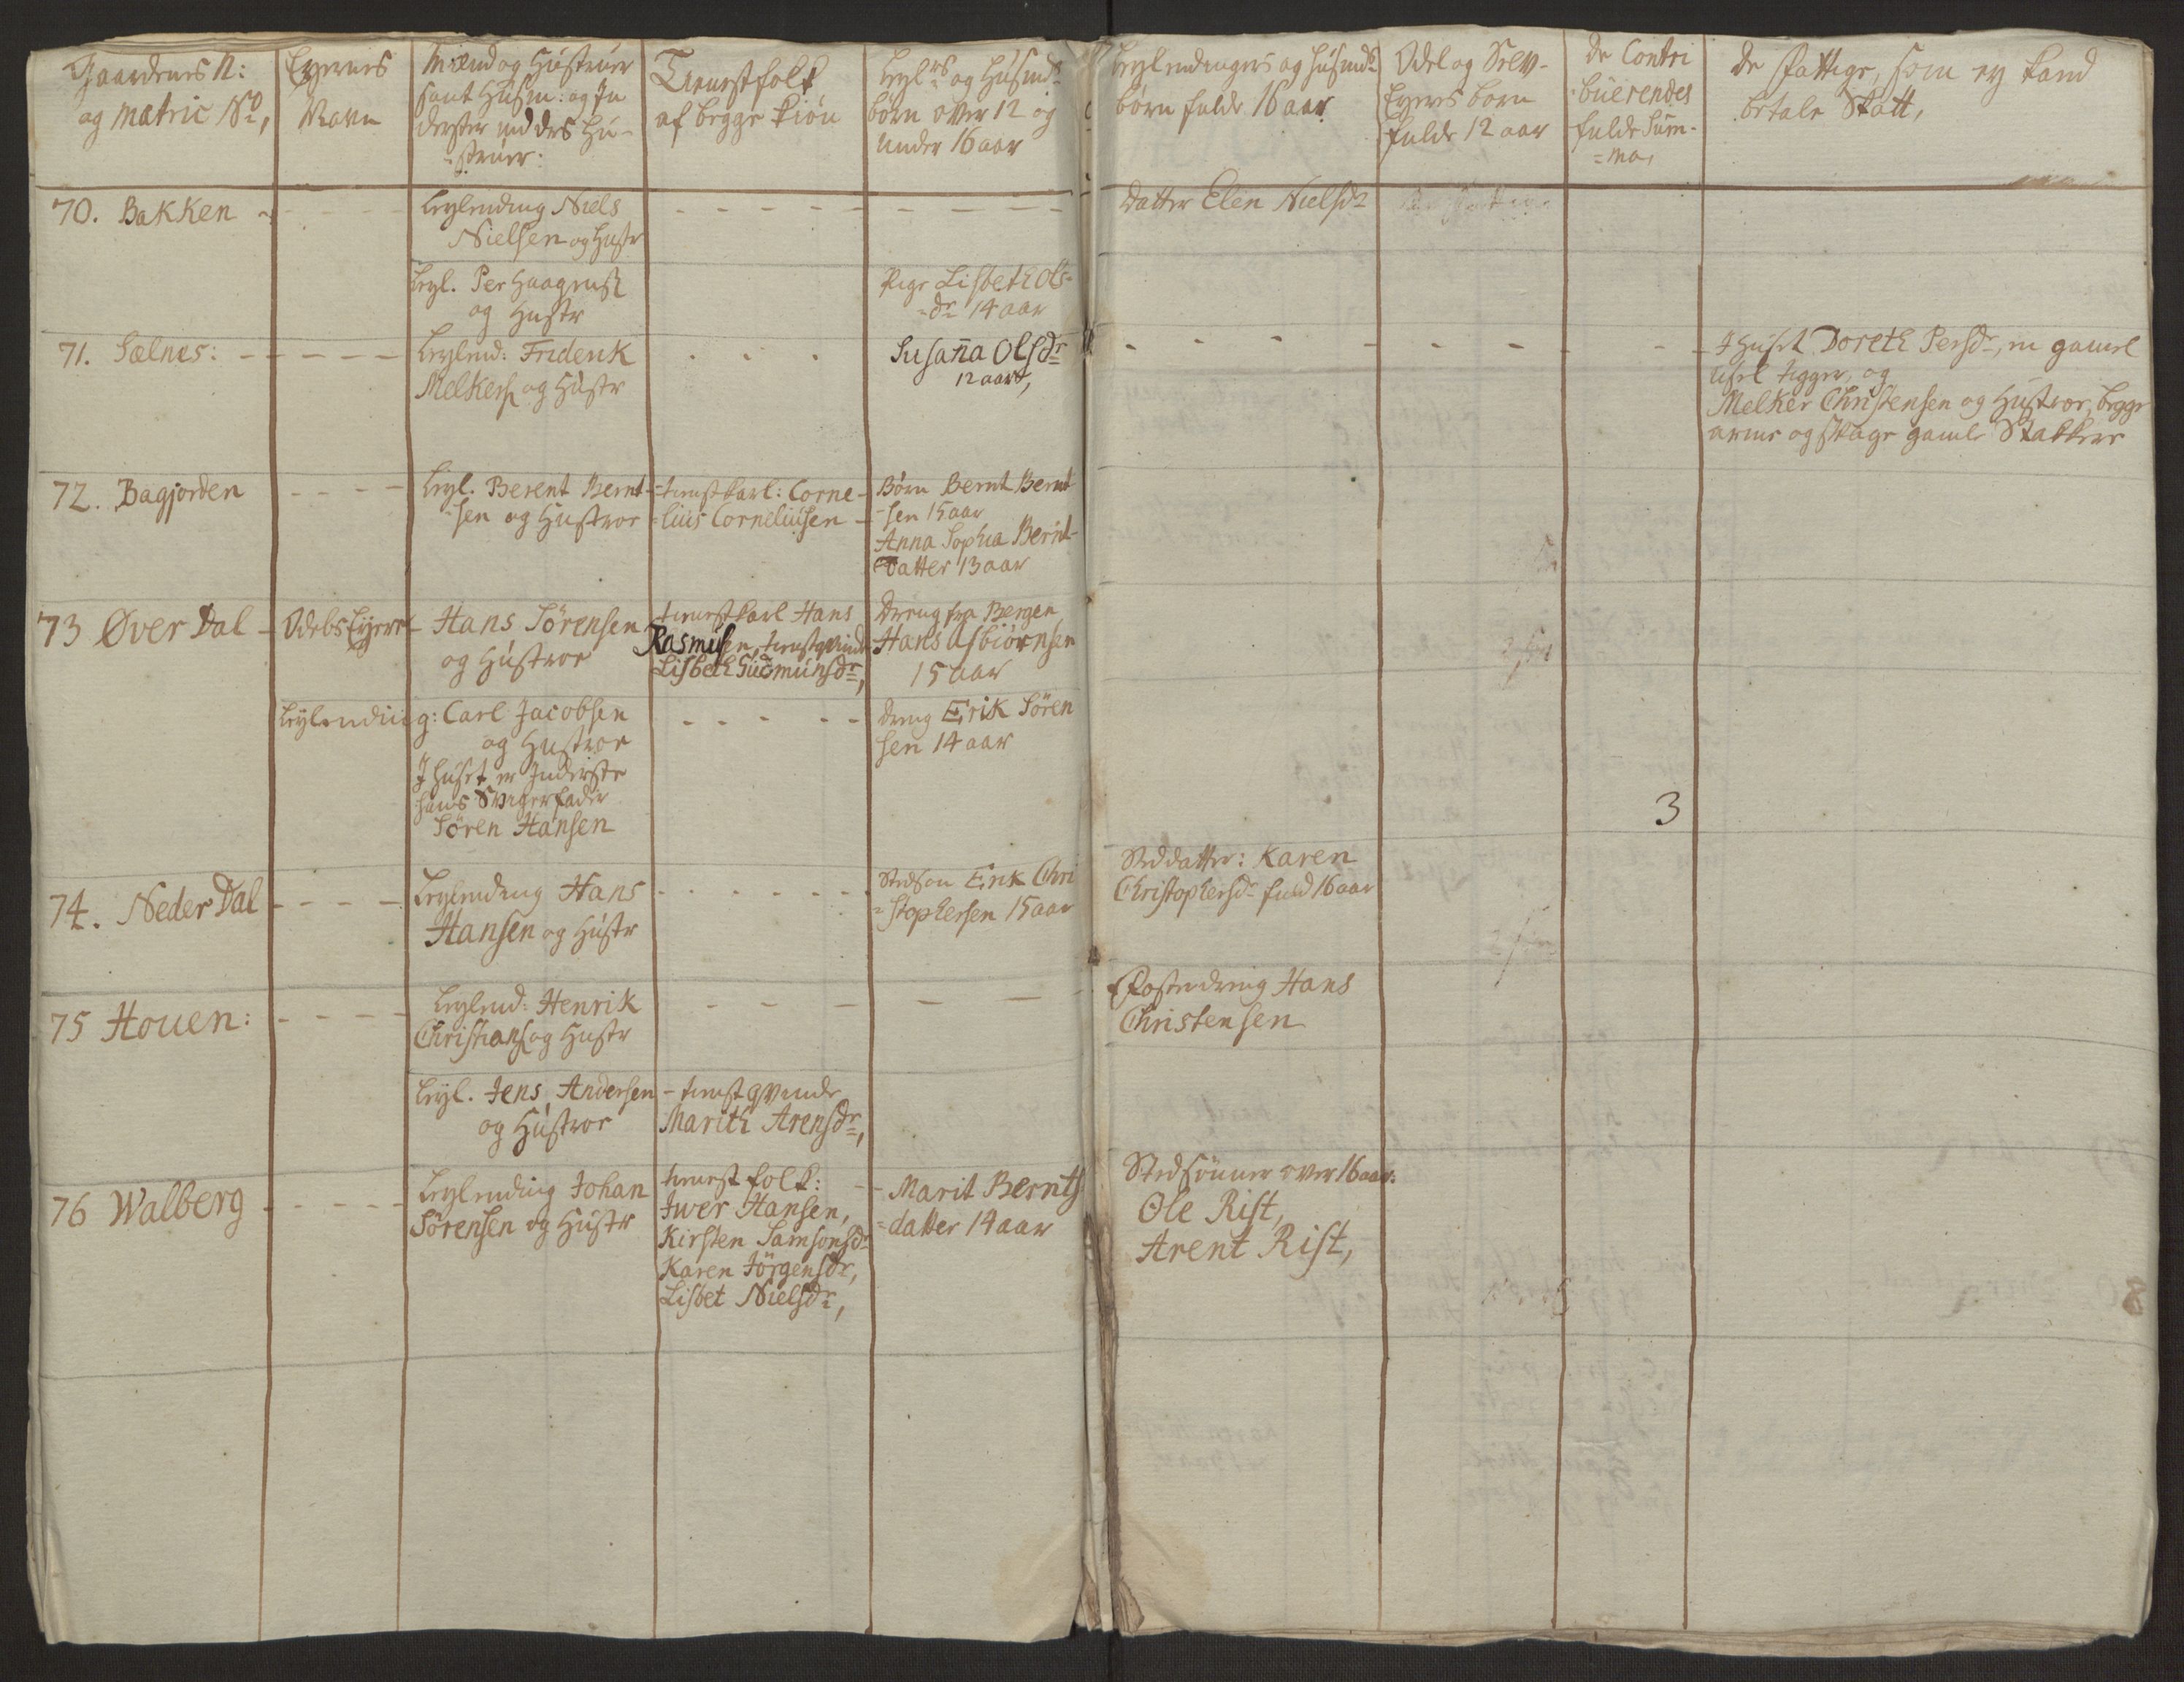 Gaardenes N:
og matric No,
Eyernes
Navn
Mænd og Hustruer
samt Husm: og In
derster med des Hu-
=struer:
Tienestfolk
af begge Kiøn
Leyl:rs og Husmds
børn over 12 og
under 16 aar
Leylendinges og husmds
børn fulde 16 aar
Odel og Selv-
Eyers born
fulde 12 aar
De Contri
büerendes
fulde Sum-
=ma,
De fattige, som ey kand
betale Skatt,
70. Bakken
Leylending Niels
Nielsen og Hustr
Datter Elen Nielsdr
Leyl. Per Haagens
og Hustr
Pige Lisbeth Ols-
=dr 14 aar
71. Sælnes:
Leylend: Friderik
Melkers og Hustr
Susanna Olsdr
12 aar,
I Huset Doreth Persdr, en gamel
usel tigger, og
Melker Christensen og Hustroe, begge
arme og svage gamle Stakkere
72. Bagjorden
Leyl. Berent Bernt-
sen og Hustroe
tienestkarl: Corne-
=lius Corneliusen
Børn Bernt Bernt
=sen 15 aar
Anna Sophia Bernt-
Datter 13 aar
73 Øver Dal
Odels Eyere
Hans Sörensen
og Hustroe
tienestkarl Hans
Rasmusen, tienestqvinde
Lisbeth Gudmunsdr,
Dreng fra Bergen
Hans Asbiörnsen
15 aar
Leylending: Carl Jacobsen
og Hustroe
I huset er Inderste
hans Svigerfader
Sören Hansen
Dreng Erik Sören
sen 14 aar
3
74. Neder Dal
Leylending Hans
Hansen og Hustr
Stedsøn Erik Chri
=stophersen 15 aar
Steddatter: Karen
Christophersdr fuld 16 aar
75 Houen:
Leylend: Henrik
Christians og Hustr
Fosterdreng Hans
Christensen
Leyl. Jens Andersen
og Hustroe
tienestqvinde
Marith Arensdr,
76 Walberg
Leylending Johan
Sörensen og Hustr
tienestfolk:
Iwer Hansen,
Kirsten Samsonsdr
Karen Jörgensdr,
Lisbet Nielsdr,
Marit Bernts
=datter 14 aar
Stedsønner over 16 aar:
Ole Rist,
Arent Rist,